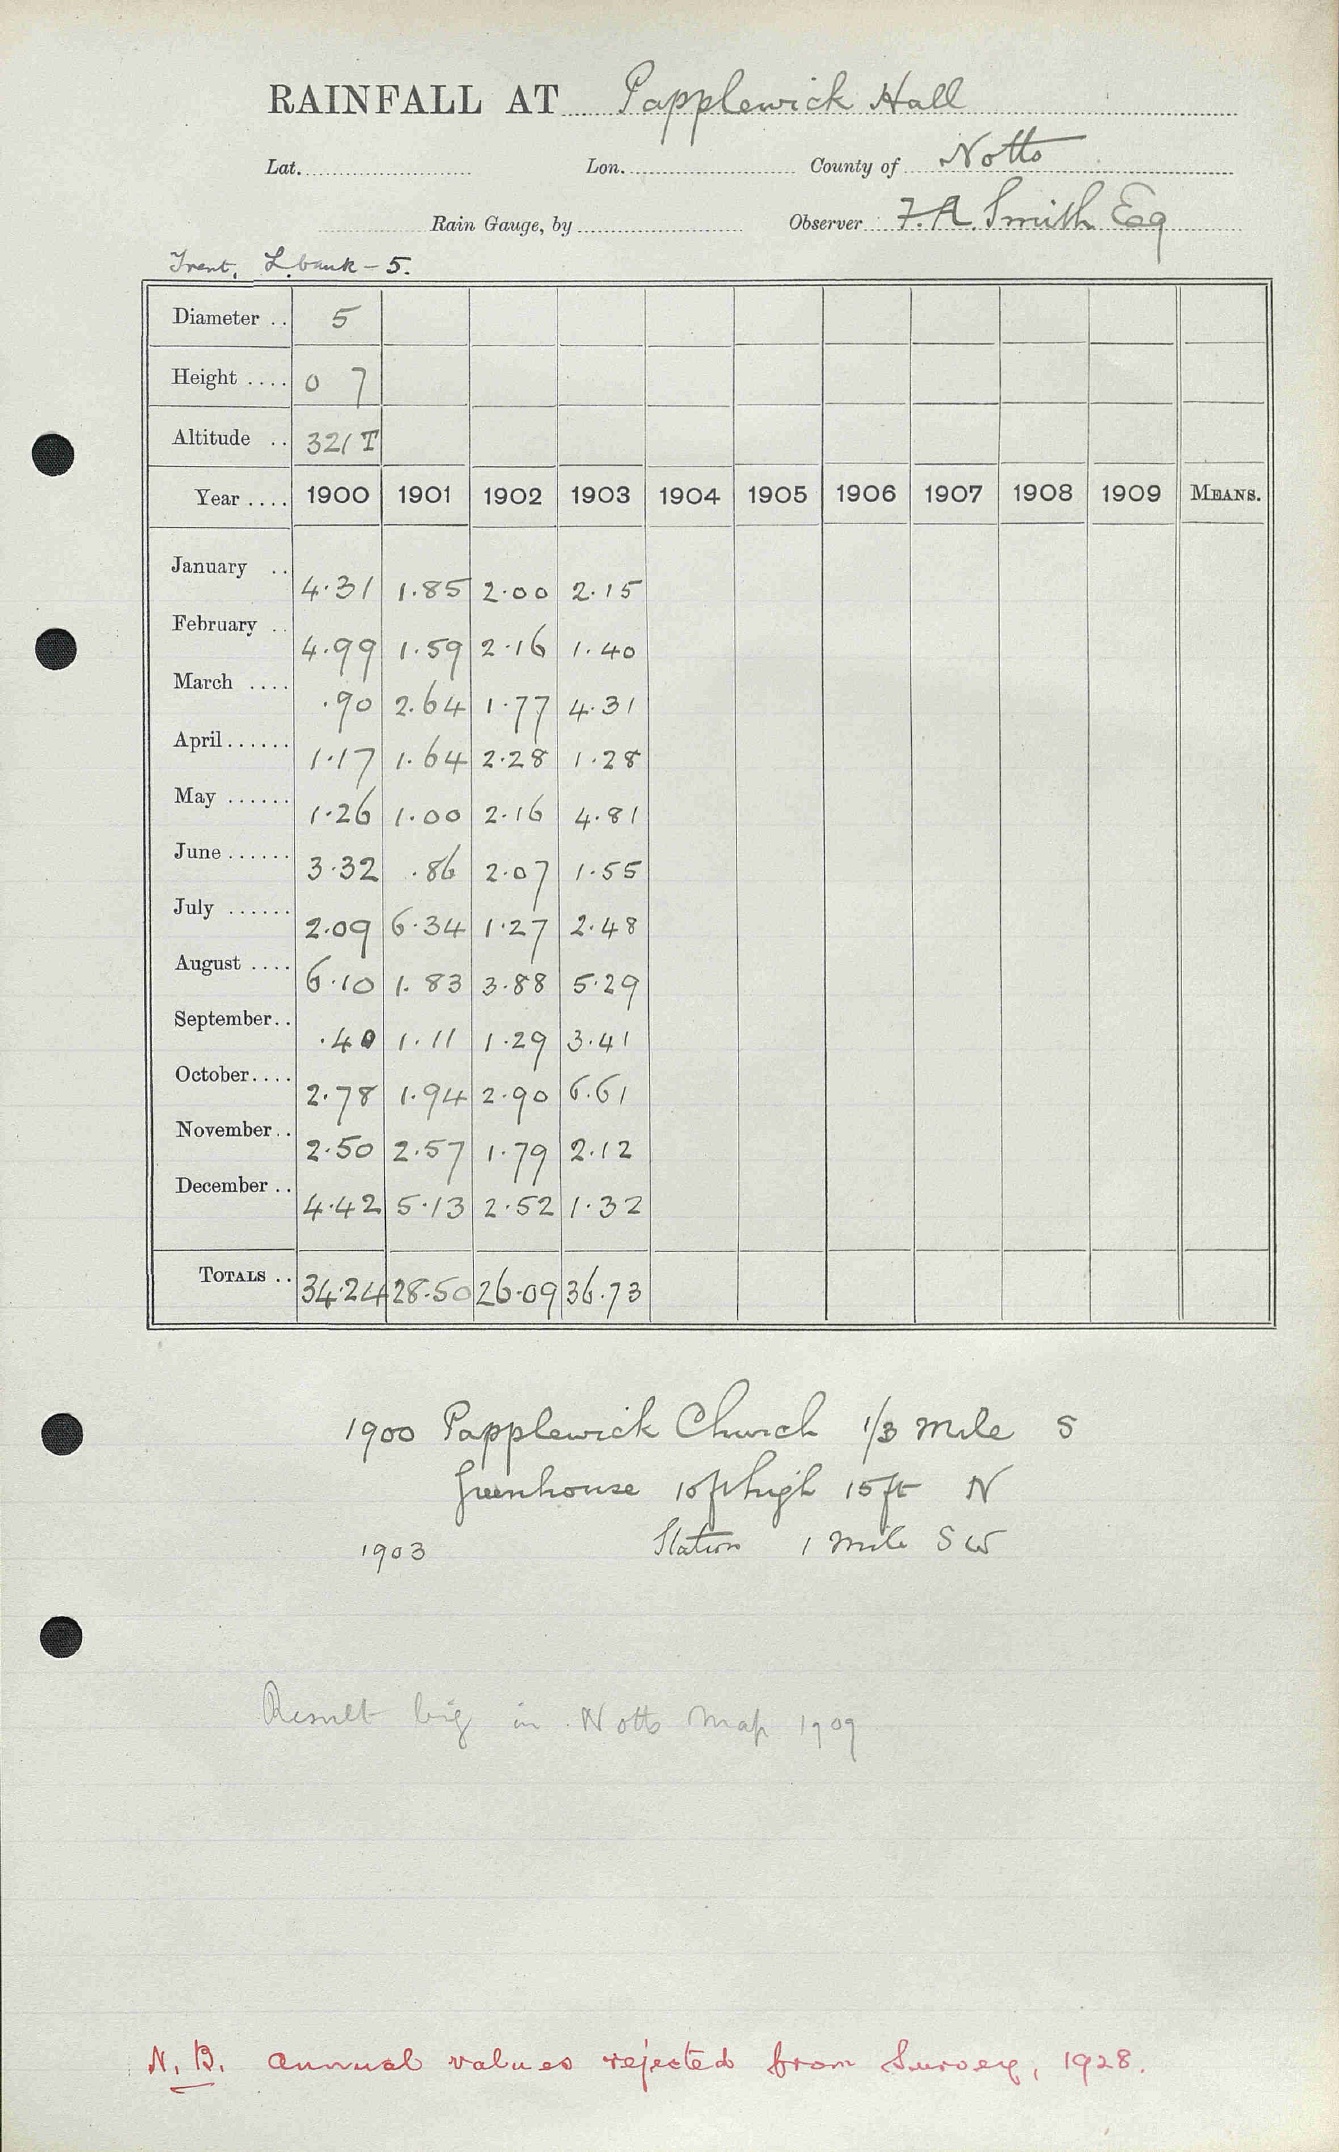 RAINFALL AT Papplewick Hall
Lat. Lon. County of Notts
Rain Gauge, by Observer F.A. Smith Esq
Trent, L bank - 5.
Diameter .. 5
Height .... 0 7
Altitude .. 321 T
Year .... 1900 1901 1902 1903 1904 1905 1906 1907 1908 1909 MEANS.
January .. 4.31 1.85 2.00 2.15
February .. 4.99 1.59 2.16 1.40
March .... .90 2.64 1.77 4.31
April...... 1.17 1.64 2.28 1.28
May ...... 1.26 1.00 2.16 4.81
June ...... 3.32 .86 2.07 1.55
July ...... 2.09 6.34 1.27 2.48
August .... 6.10 1.83 3.88 5.29
September.. .40 1.11 1.29 3.41
October.... 2.78 1.94 2.90 6.61
November.. 2.50 2.57 1.79 2.12
December .. 4.42 5.13 2.52 1.32
TOTALS .. 34.24 28.50 26.09 36.73
1900 Papplewick Church 1/3 mile S
Greenhouse 10ft high 15ft N
1903 Station 1 mile SW
Result big in Notts Map 1909
N.B. Annual values rejected from Survey, 1928.